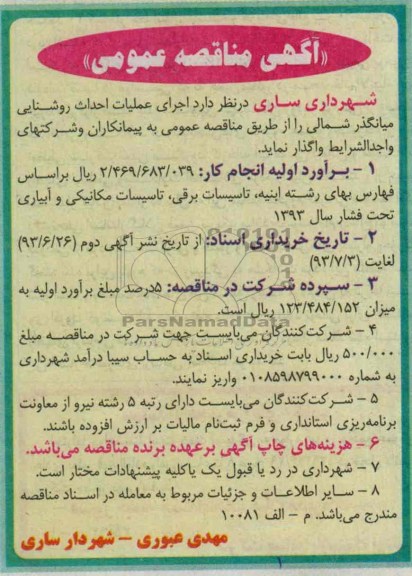 «آگهی مناقصه عمومی»
شهرداری ساری درنظر دارد اجرای عملیات احداث روشنایی
میانگذر شمالی را از طریق مناقصه عمومی به پیمانکاران وشرکتهای
واجدالشرایط واگذار نماید.
۱ - برآورد اولیه انجام کار: ۲/۴۶۹/۶۸۳/۰۳۹ ریال براساس
فهارس بهای رشته ابنیه، تاسیسات برقی، تاسیسات مکانیکی و آبیاری
تحت فشار سال ۱۳۹۳
۲ - تاریخ خریداری اسناد: از تاریخ نشر آگهی دوم (۹۳/۶/۲۶)
لغایت (۹۳/۷/۳)
۳ - سپرده شرکت در مناقصه: ۵درصد مبلغ برآورد اولیه به
میزان ۱۲۳/۴۸۴/۱۵۲ ریال است.
ParsNamadData
۴ - شرکت‌کنندگان می‌بایست جهت شرکت در مناقصه مبلغ
۵۰۰/۰۰۰ ریال بابت خریداری اسناد به حساب سیبا درآمد شهرداری
به شماره ۰۱۰۸۵۹۸۷۹۹۰۰۰ واریز نمایند.
۵ - شرکت‌کنندگان می‌بایست دارای رتبه ۵ رشته نیرو از معاونت
برنامه‌ریزی استانداری و فرم ثبت‌نام مالیات بر ارزش افزوده باشند.
۶ - هزینه‌های چاپ آگهی برعهده برنده مناقصه می‌باشد.
۷ - شهرداری در رد یا قبول یک یاکلیه پیشنهادات مختار است.
۸ - سایر اطلاعات و جزئیات مربوط به معامله در اسناد مناقصه
مندرج می‌باشد. م - الف ۱۰۰۸۱
مهدی عبوری - شهردار ساری